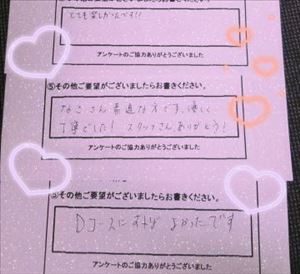 とても楽しかったです!!
アンケートのご協力ありがとうございました
⑤その他ご要望がございましたらお書きください。
なこさん素適な方です、優しく
丁寧でした! スタッフさんありがとう!
アンケートのご協力ありがとうございました
⑤その他ご要望がございましたらお書きください。
Dコースにすれば よかったです
アンケートのご協力ありがとうございました